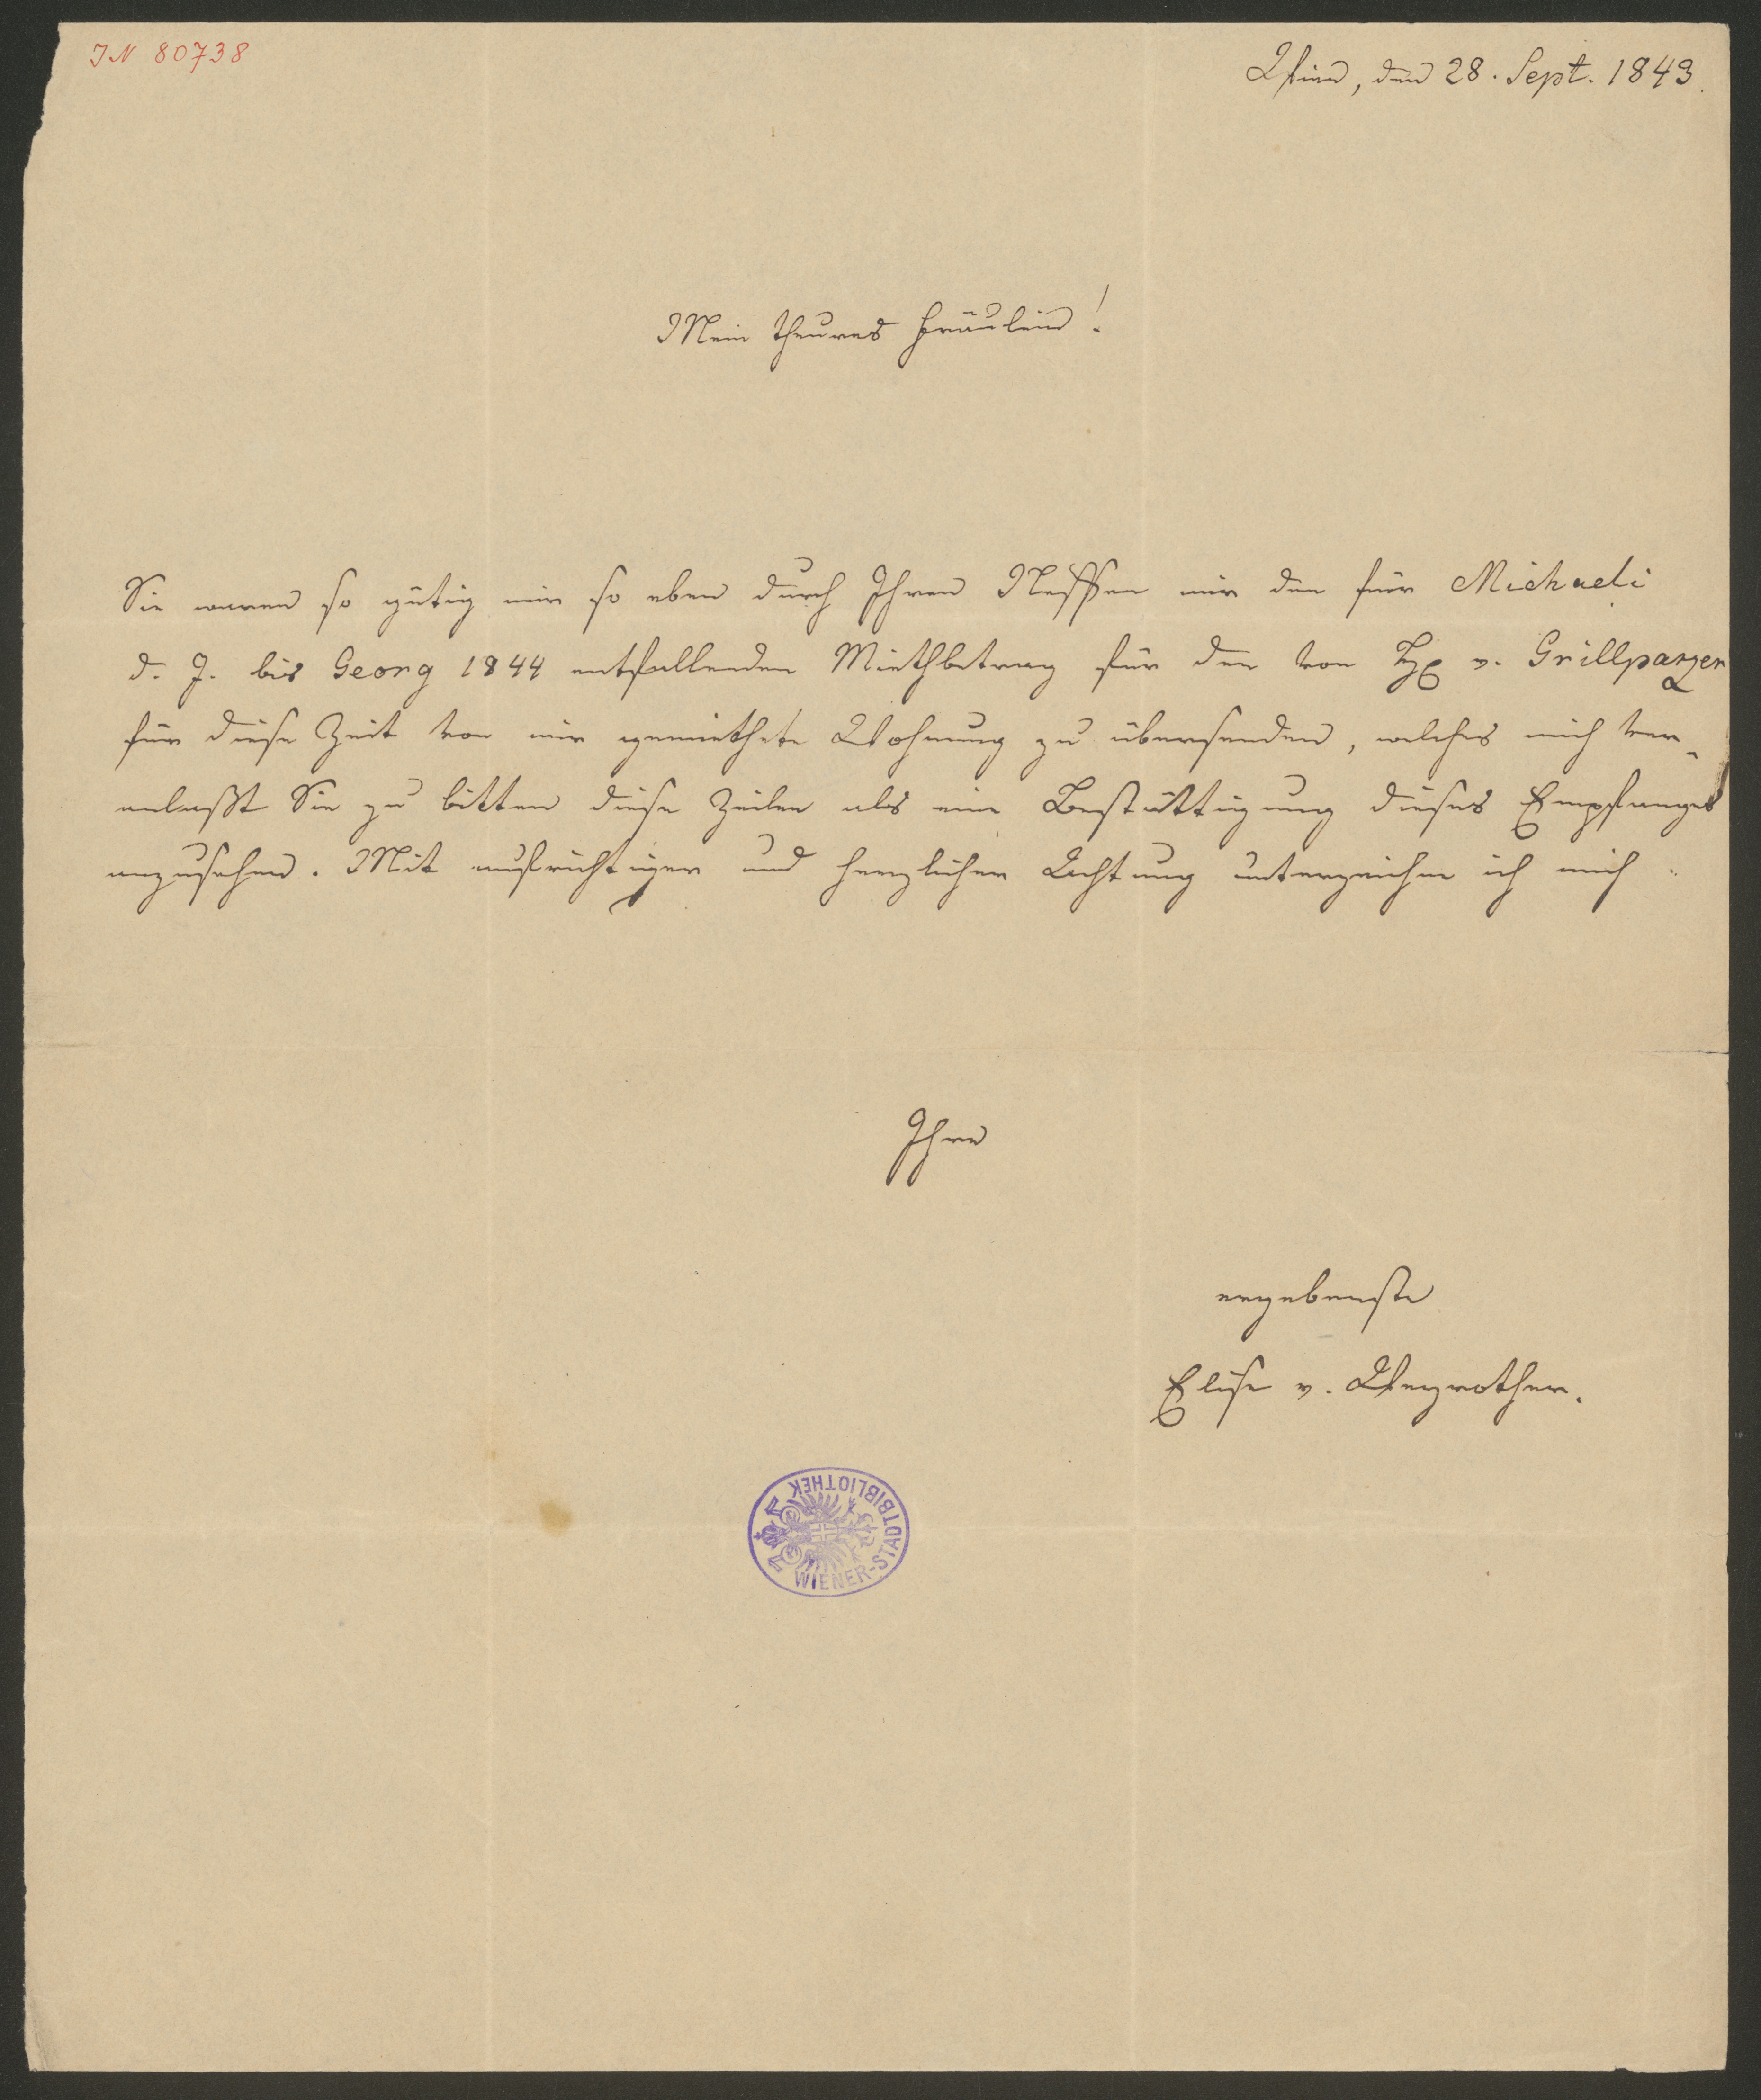 IN 80738
Wien, den 28. Sept. 1843.
Mein theures Fräulein!
Sie waren so gütig mir so eben durch Ihren Neffen mir den für Michaeli
d. J. bis Georg 1844 entfallenden Miethbetrag für den von H v. Grillparzer
für diese Zeit von mir gemiethete Wohnung zu übersenden, welches mich ver-
anlaßt Sie zu bitten diese Zeilen als eine Bestättigung dieses Empfanges
anzusehen. Mit aufrichtiger und herzlicher Achtung unterzeichne ich mich
Ihre
ergebenste
Elise v. Weyrother.
WIENER-STADTBIBLIOTHEK